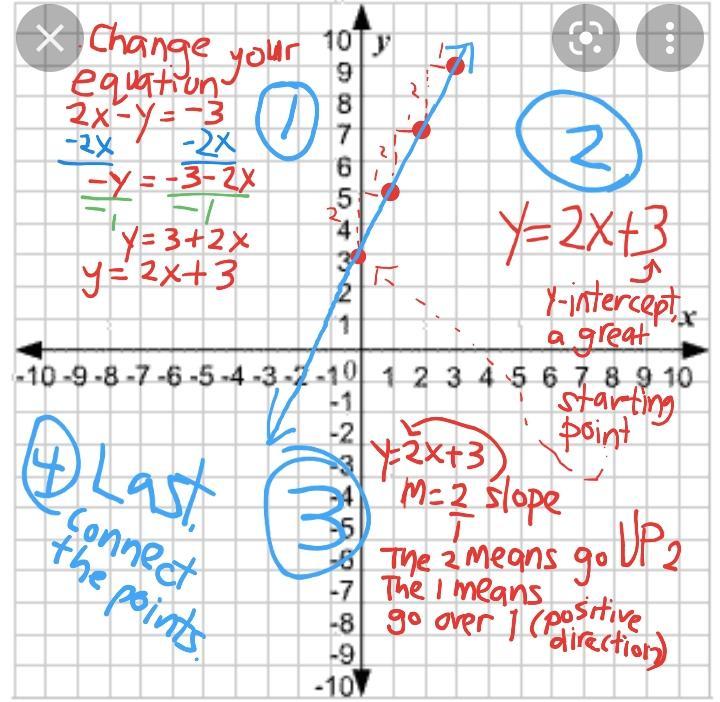 Change your
equation
①
2x-y = -3
-2x -2x
-y = -3-2x
-1 -1
y = 3+2x
y = 2x+3
②
y=2x+3
y-intercept,
a great
starting
point
③
y=2x+3
m=2/1 slope
The 2 means go UP 2
The 1 means
go over 1 (positive
direction)
④ Last,
connect
the points.
y
x
10
9
8
7
6
5
4
3
2
1
-10 -9 -8 -7 -6 -5 -4 -3 -2 -1 0 1 2 3 4 5 6 7 8 9 10
-1
-2
-3
-4
-5
-6
-7
-8
-9
-10
2
2
2